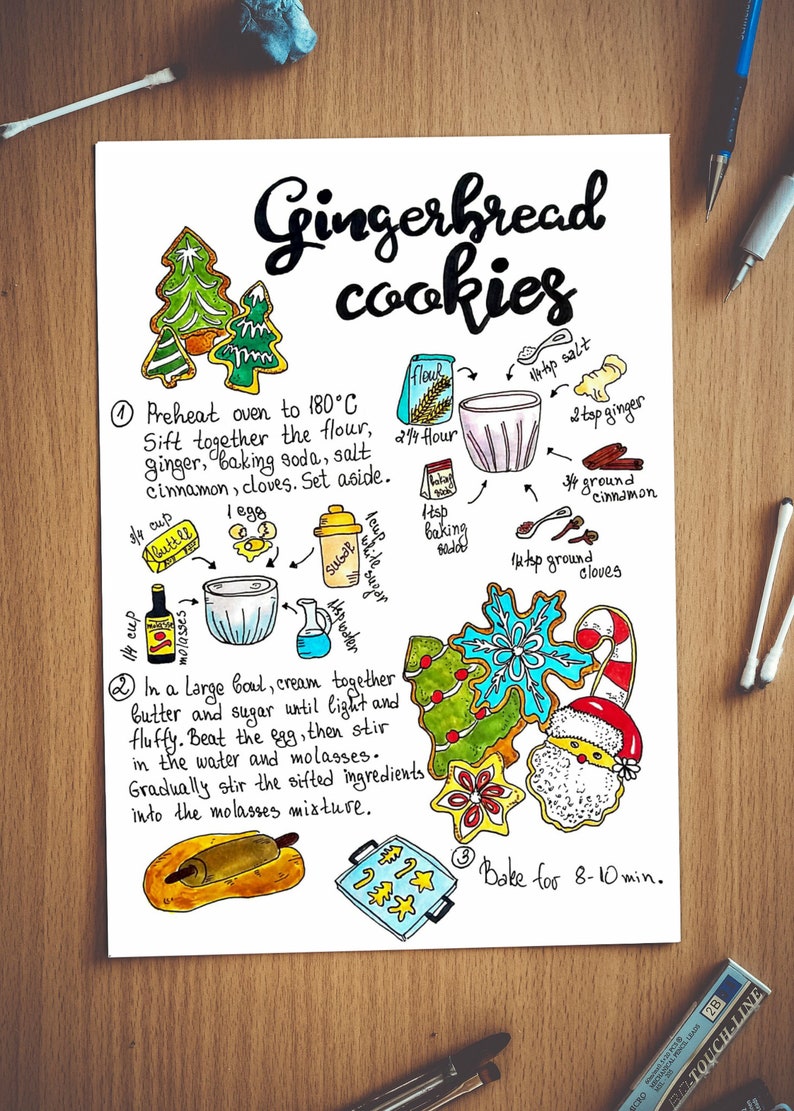 Gingerbread
cookies
flour
2 1/4 flour
1/4 tsp salt
2 tsp ginger
3/4 ground
cinnamon
1/2 tsp ground
cloves
baking
soda
1 tsp
baking
soda
1 Preheat oven to 180°C
Sift together the flour,
ginger, baking soda, salt
cinnamon, cloves. Set aside.
3/4 cup
butter
1 egg
sugar
1 cup
white sugar
1 tsp water
molasses
1/4 cup
molasses
2 In a large bowl, cream together
butter and sugar until light and
fluffy. Beat the egg, then stir
in the water and molasses.
Gradually stir the sifted ingredients
into the molasses mixture.
3 Bake for 8-10 min.
2B
TOUCH-LINE
MECHANICAL PENCIL LEADS
MICRO